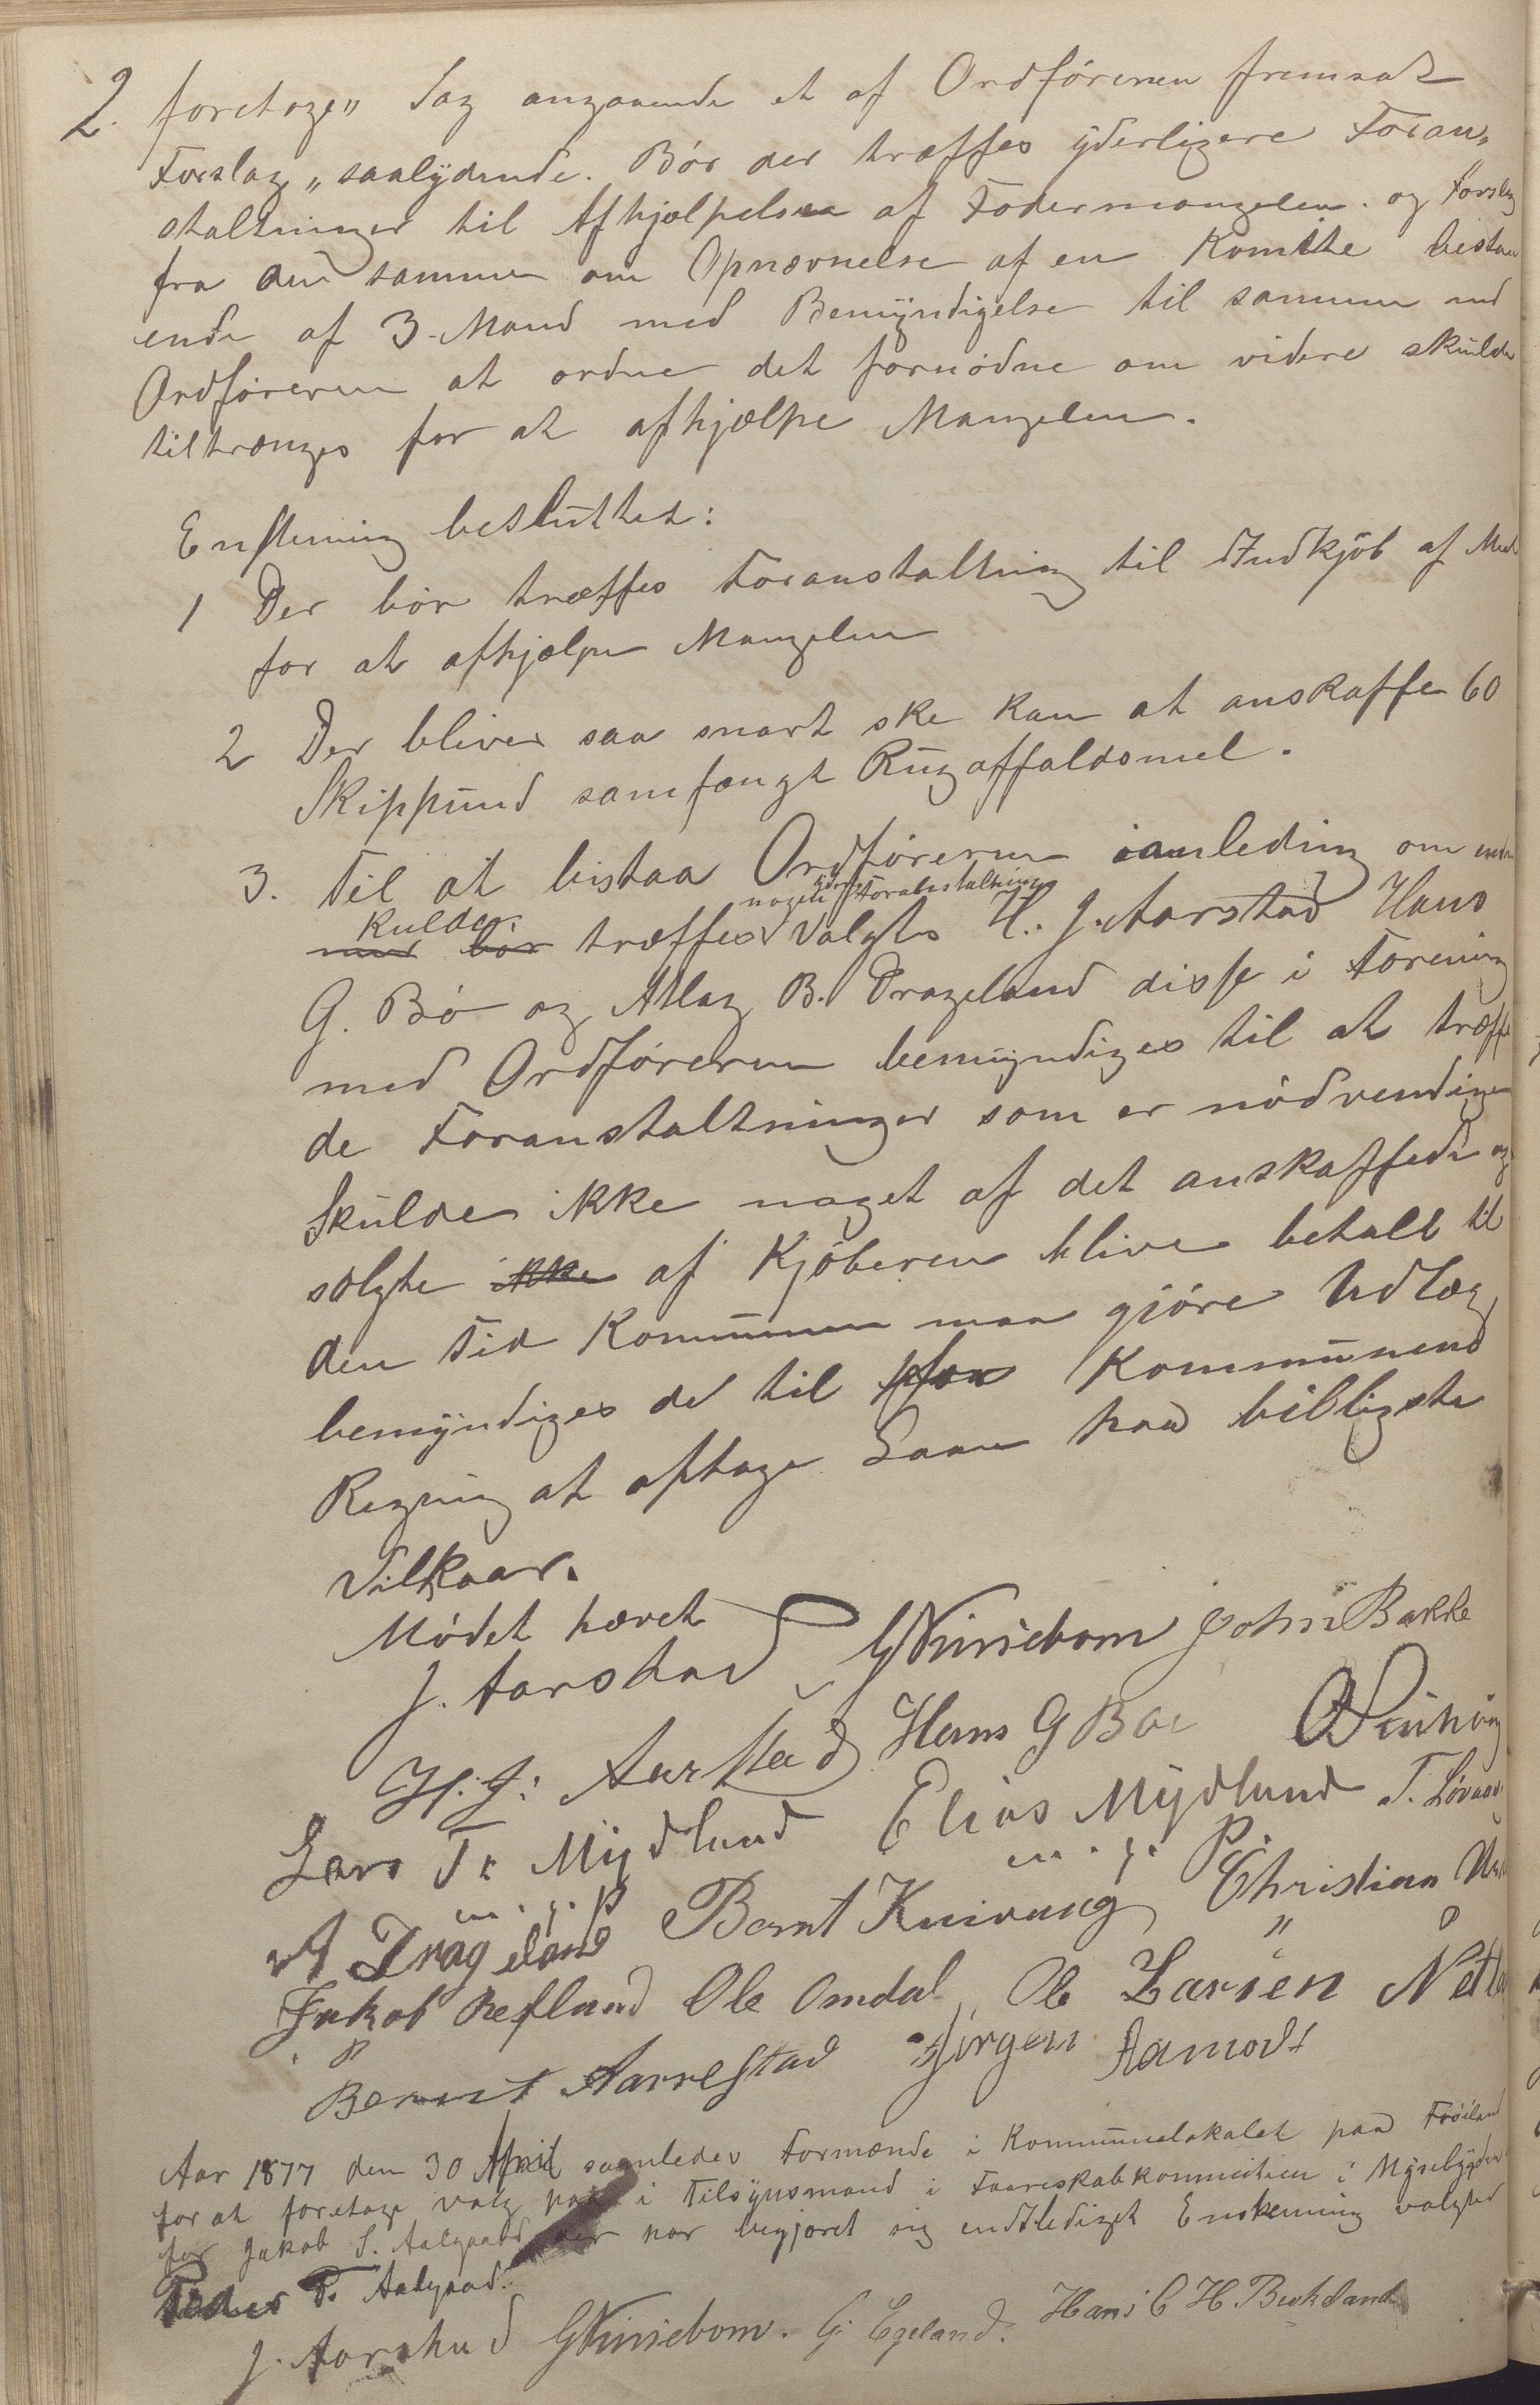 2. foretoges Sag angaaende et af Ordføreren fremsat
Forslag „saalydende. Bør der træffes yderligere Foran„
staltninger til Afhjælpelsen af Fodermangelen. og Forslag
fra den samme om Opnævnelse af en Komite bestaa
ende af 3 Mand med Bemyndigelse til sammen med
Ordføreren at ordne det fornødne om videre skulde
tiltrænges for at afhjælpe Mangelen.
Enstemmig besluttet:
1 Der bør træffes Foranstaltning til Indkjøb af Mel
for at afhjælpe Mangelen
2 Der bliver saa snart ske kan at anskaffe 60
Skippund samfængt Rugaffaldsmel.
3. Til at bistaa Ordføreren i anleding om
skulde træffes nogen Foranstaltning valgtes H. J. Aarstad Hans
G. Bø og Atlag B. Drageland disse i Forening
med Ordføreren bemyndiges til at træffe
de Foranstaltninger som er nødvendige
Skulde ikke noget af det anskaffede og
solgte ikke af Kjøberen blive betalt til
den Tid Kommunen maa gjøre Udlæg
bemyndiges de til for Kommunens
Regning at optage Laan paa billigste
Vilkaar.
Mødet hævet
J. Aarstad G Nissebom John Bakke
H. J. Aarstad Hans G Bøe
Lars T. Mydlund Elias Mydlund T. Løvaas
m. p. P. m. p. P.
A Drageland Bernt Knivung Christian
Jakob Refland Ole Omdal Ole Larsen Netla
Bernt Aarrestad Jørgen Aamodt
Aar 1877 den 30 April samledes Formænde i Kommunelokalet paa Frøiland
for at foretage valg paa i Tilsynsmand i Faareskabkommition i Mysebygden
for Jakob S. Aalgaard der har begjæret sig endtlediget Enstemmig valgtes
Peder T. Aalgaard.
J. Aarstad G Nissebom. G. Egeland. Hans C H. Birkeland